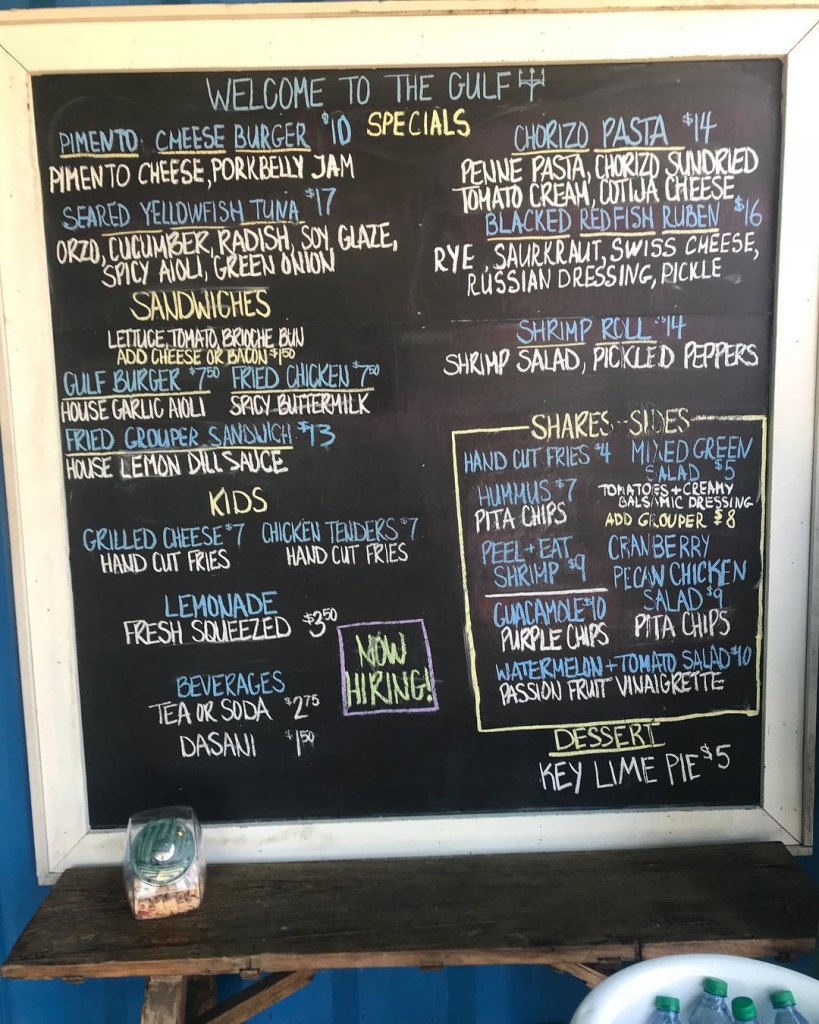 WELCOME TO THE GULF
SPECIALS
PIMENTO CHEESE BURGER $10
PIMENTO CHEESE, PORKBELLY JAM
SEARED YELLOWFISH TUNA $17
ORZO, CUCUMBER, RADISH, SOY GLAZE,
SPICY AIOLI, GREEN ONION
CHORIZO PASTA $14
PENNE PASTA, CHORIZO SUNDRIED
TOMATO CREAM, COTIJA CHEESE
BLACKED REDFISH RUBEN $16
RYE, SAURKRAUT, SWISS CHEESE,
RUSSIAN DRESSING, PICKLE
SHRIMP ROLL $14
SHRIMP SALAD, PICKLED PEPPERS
SANDWICHES
LETTUCE, TOMATO, BRIOCHE BUN
ADD CHEESE OR BACON $1.50
GULF BURGER $7.50
HOUSE GARLIC AIOLI
FRIED CHICKEN $7.50
SPICY BUTTERMILK
FRIED GROUPER SANDWICH $13
HOUSE LEMON DILL SAUCE
KIDS
GRILLED CHEESE $7
HAND CUT FRIES
CHICKEN TENDERS $7
HAND CUT FRIES
LEMONADE
FRESH SQUEEZED $3.50
NOW
HIRING!
BEVERAGES
TEA OR SODA $2.75
DASANI $1.50
SHARES--SIDES
HAND CUT FRIES $4
HUMMUS $7
PITA CHIPS
PEEL + EAT
SHRIMP $9
GUACAMOLE $10
PURPLE CHIPS
MIXED GREEN
SALAD $5
TOMATOES + CREAMY
BALSAMIC DRESSING
ADD GROUPER $8
CRANBERRY
PECAN CHICKEN
SALAD $9
PITA CHIPS
WATERMELON + TOMATO SALAD $10
PASSION FRUIT VINAIGRETTE
DESSERT
KEY LIME PIE $5